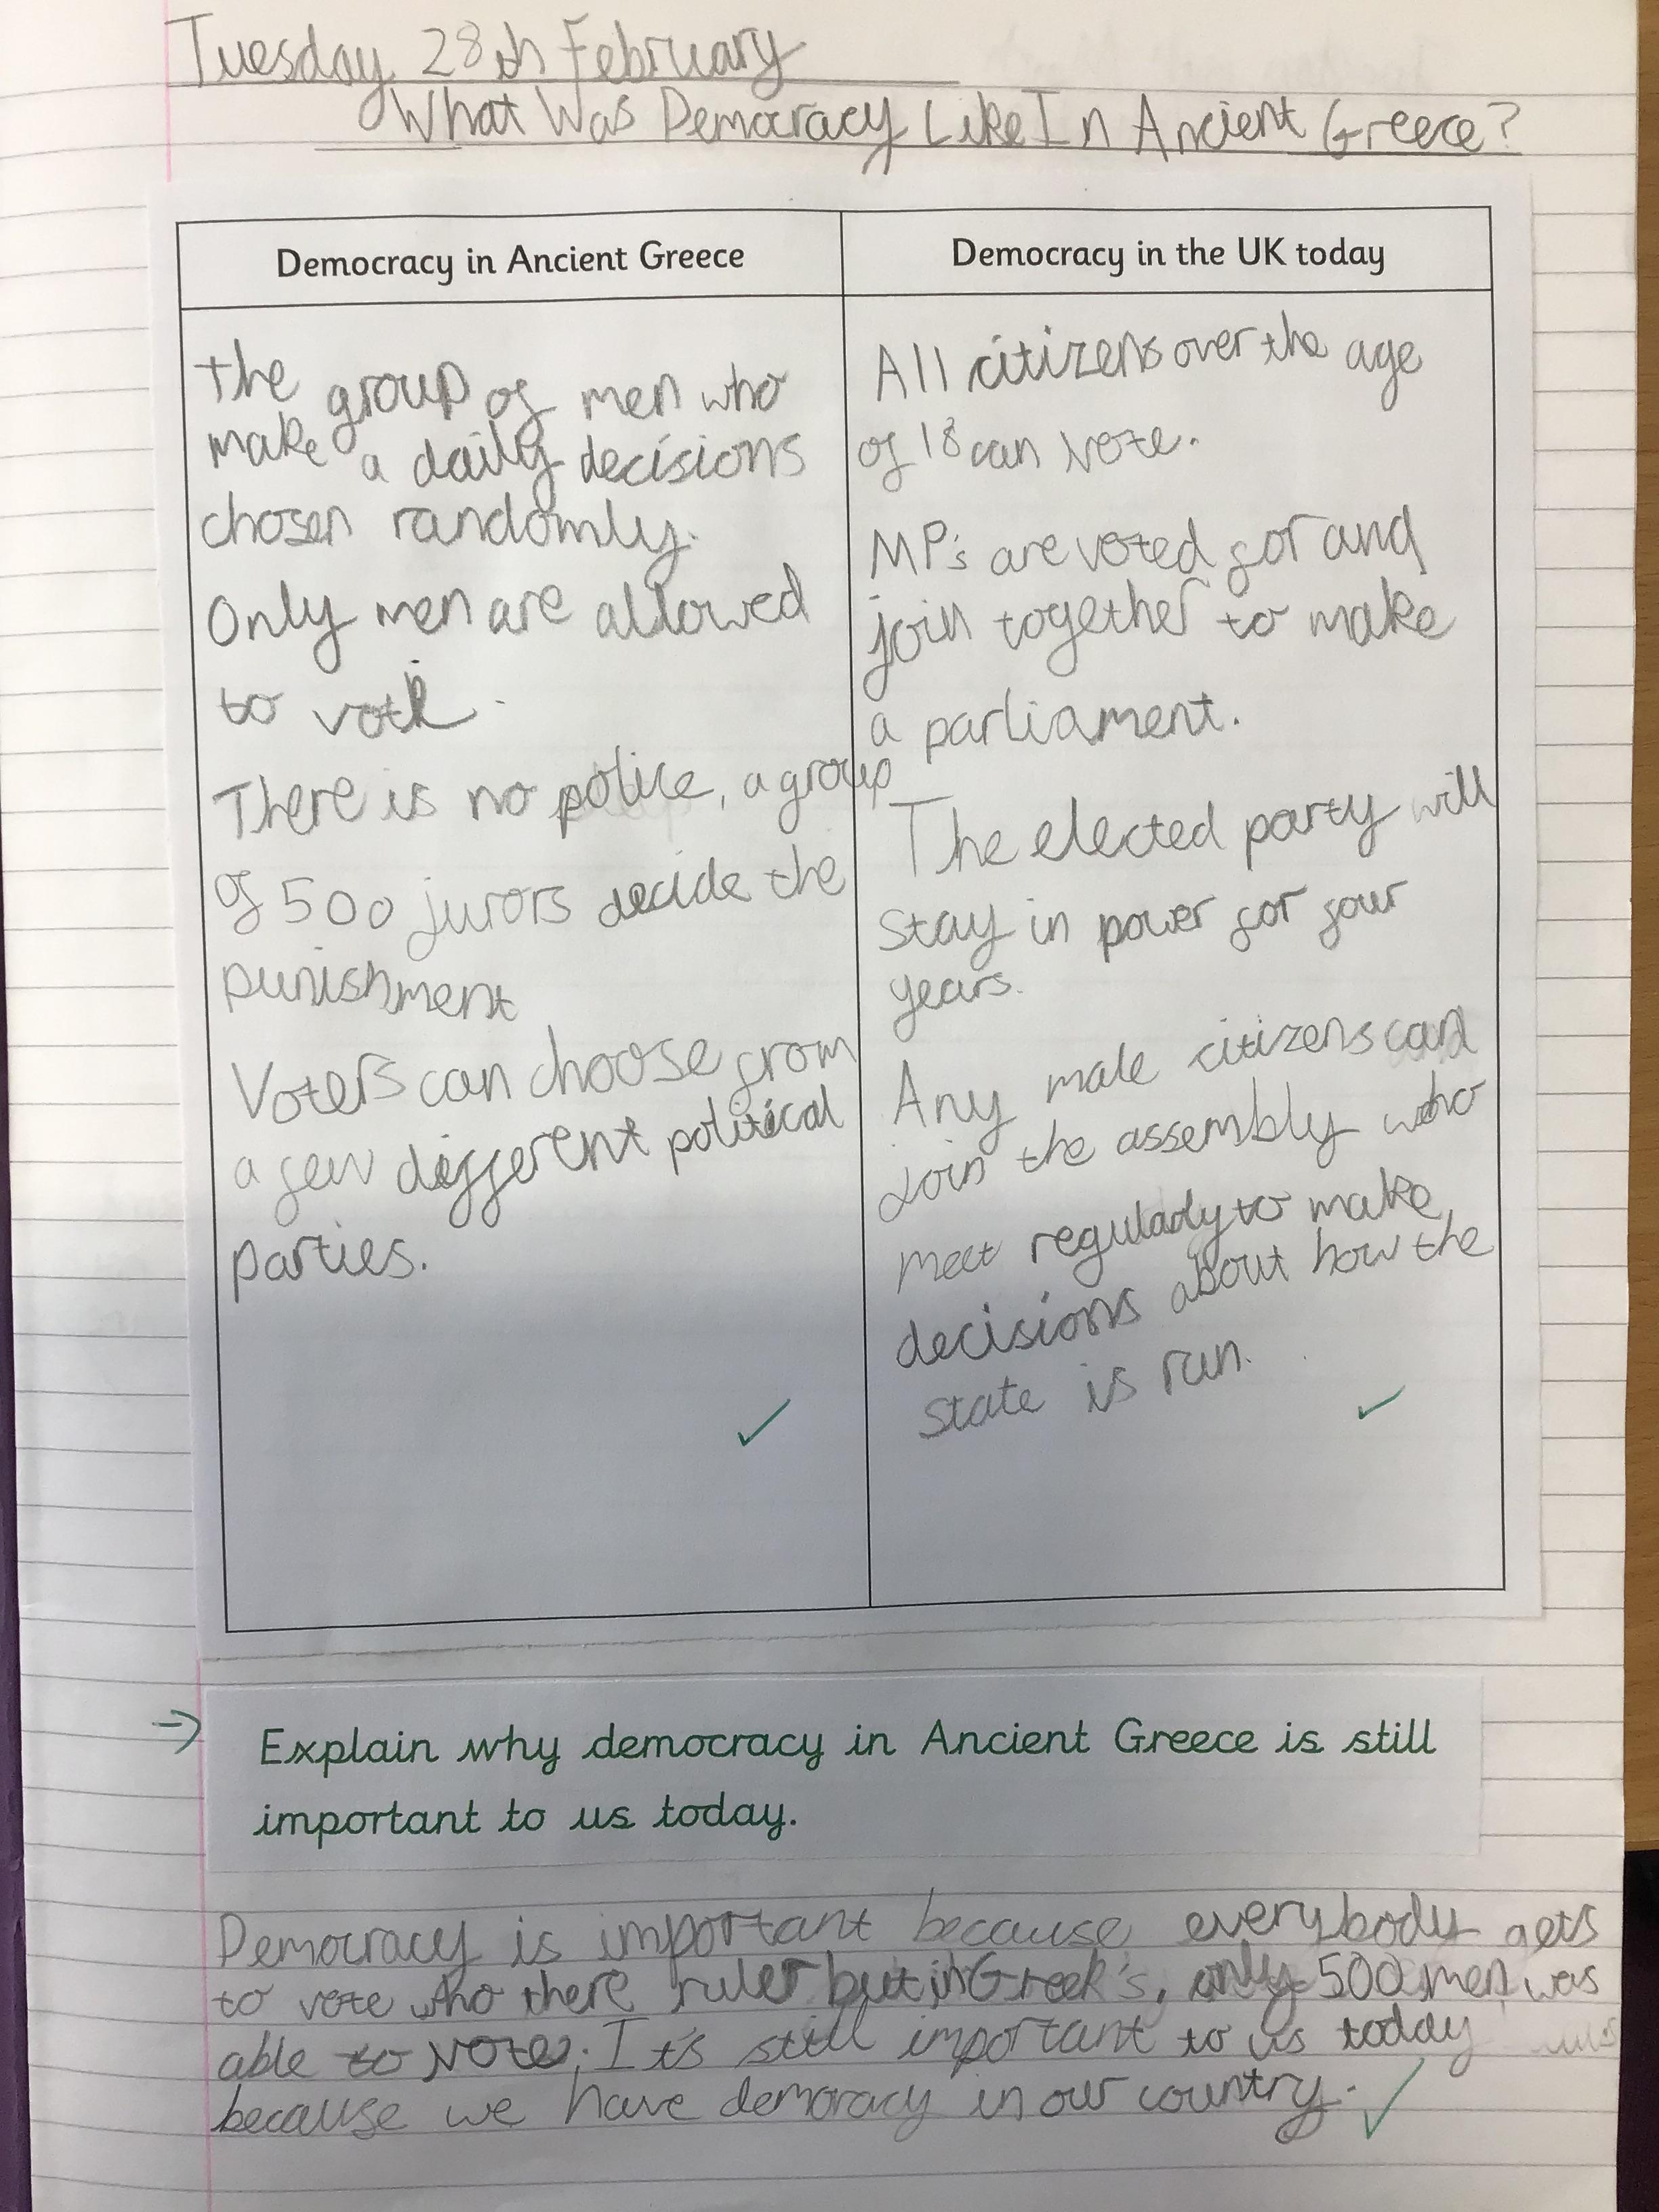 Tuesday 28th February
What Was Democracy Like In Ancient Greece?
Democracy in Ancient Greece
the group of men who
make a daily decisions
chosen randomly.
Only men are allowed
to vote.
There is no police, a group
of 500 jurors decide the
punishment
Voters can choose from
a few different political
parties.
Democracy in the UK today
All citizens over the age
of 18 can vote.
MP's are voted for and
join together to make
a parliament.
The elected party will
stay in power for four
years.
Any male citizens can
Join the assembly who
meet regularly to make
decisions about how the
state is run.
Explain why democracy in Ancient Greece is still
important to us today.
Democracy is important because everybody gets
to vote who there ruler but in Greek's, only 500 men was
able to vote. It's still important to us today
because we have demoracy in our country.